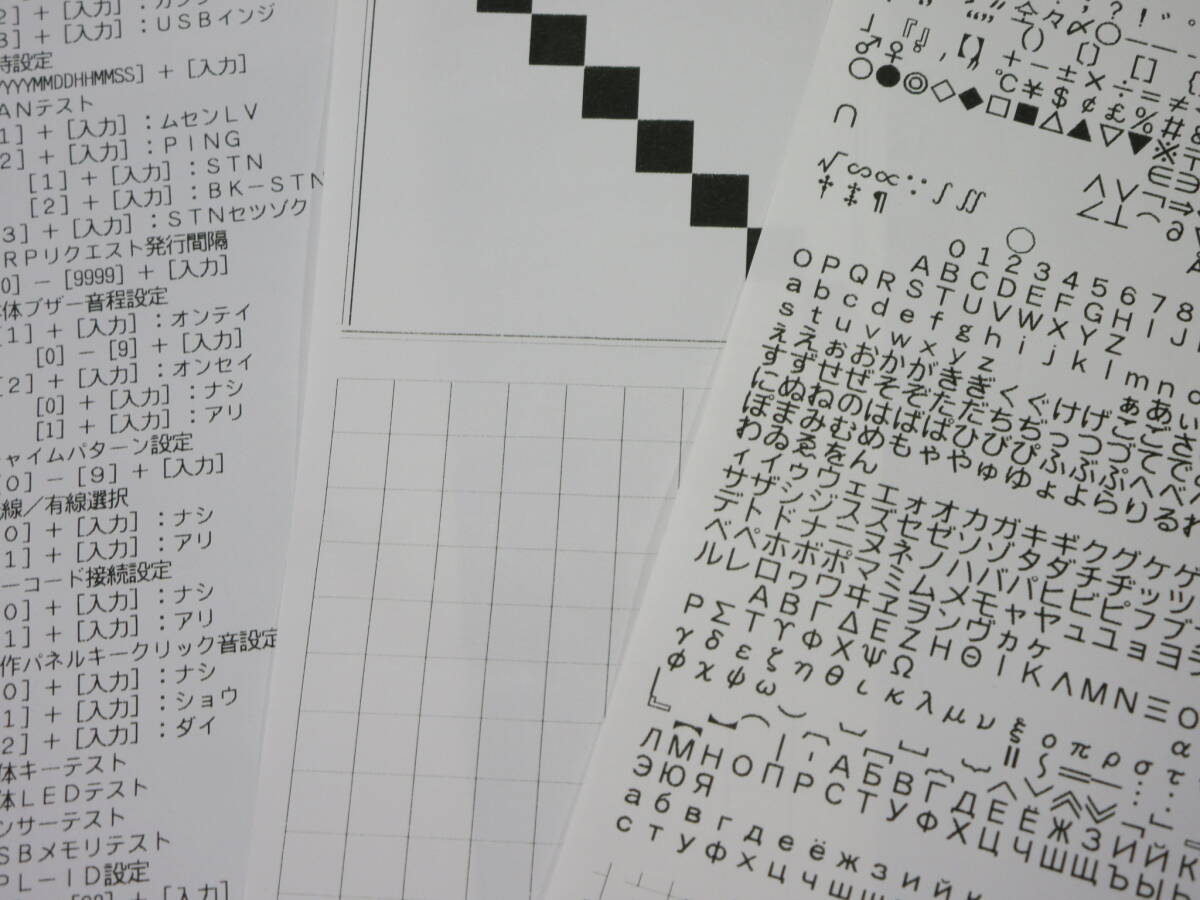 2] + [入力] :
3] + [入力] : ＵＳＢインジ
時設定
YYYYMMDDHHMMSS] + [入力]
ＡＮテスト
1] + [入力] : ムセンＬＶ
2] + [入力] : ＰＩＮＧ
[1] + [入力] : ＳＴＮ
[2] + [入力] : ＢＫ－ＳＴＮ
3] + [入力] : ＳＴＮセツゾク
ＲＰリクエスト発行間隔
0] － [9999] + [入力]
体ブザー音程設定
[1] + [入力] : オンテイ
[0] － [9] + [入力]
[2] + [入力] : オンセイ
[0] + [入力] : ナシ
[1] + [入力] : アリ
ャイムパターン設定
0] － [9] + [入力]
線／有線選択
0] + [入力] : ナシ
1] + [入力] : アリ
ーコード接続設定
0] + [入力] : ナシ
1] + [入力] : アリ
作パネルキークリック音設定
0] + [入力] : ナシ
1] + [入力] : ショウ
2] + [入力] : ダイ
体キーテスト
体ＬＥＤテスト
ンサーテスト
ＳＢメモリテスト
ＰＬ－ＩＤ設定
+ [入力]
仝々〆〇
＋－±×÷＝≠
℃￥＄￠￡％＃
○●◎◇◆□■△▲▽▼※〒
∈∋
∩
√∽∝∵∫∬
†‡¶
◯
０１２３４５６７８
ＡＢＣＤＥＦＧＨＩＪ
ＯＰＱＲＳＴＵＶＷＸＹＺ
ａｂｃｄｅｆｇｈｉｊｋｌｍｎｏ
ｓｔｕｖｗｘｙｚ
ぁあぃ
ぇえぉおかがきぎくぐけげこごさ
すずせぜそぞただちぢっつづてで
にぬねのはばぱひびぴふぶぷへべ
ぽまみむめもゃやゅゆょよらりるれ
わゐゑをん
ィイゥウェエォオカガキギクグケゲ
サザシジスズセゼソゾタダチヂッツ
デトドナニヌネノハバパヒビピフブ
ベペホボポマミムメモャヤュユョヨ
ルレロヮワヰヱヲンヴヵヶ
ΑΒΓΔΕΖΗΘΙΚΛΜΝΞΟ
ΡΣΤΥΦΧΨΩ
α
γδεζηθικλμνξοπρστ
φχψω
АБВГДЕЁЖЗИЙК
ЛМНОПРСТУФХЦЧШЩЪЫЬ
ЭЮЯ
абвгдеёжзийк
стуфхцчшщ